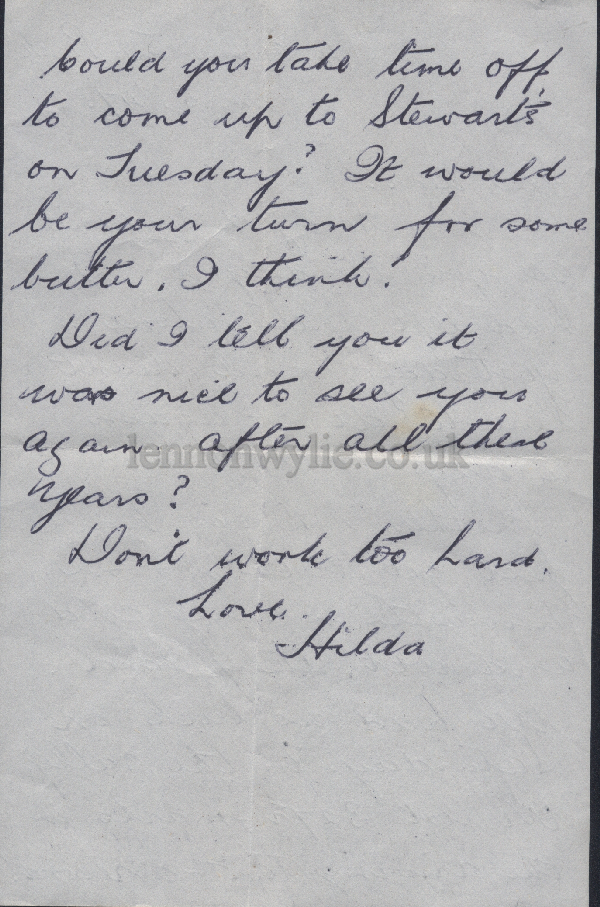 Could you take time off
to come up to Stewarts
on Tuesday? It would
be your turn for some
butter, I think.
Did I tell you it
was nice to see you
again after all these
years?
Don't work too hard.
Love.
Hilda
lennonwylie.co.uk